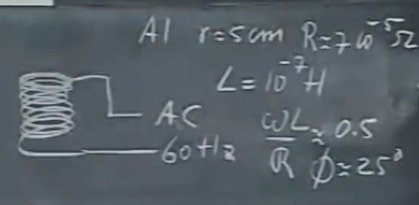 Al r=5cm R≈7 10⁻⁵Ω
L=10⁻⁷H
AC
60Hz
ωL/R≈0.5
ϕ≈25°